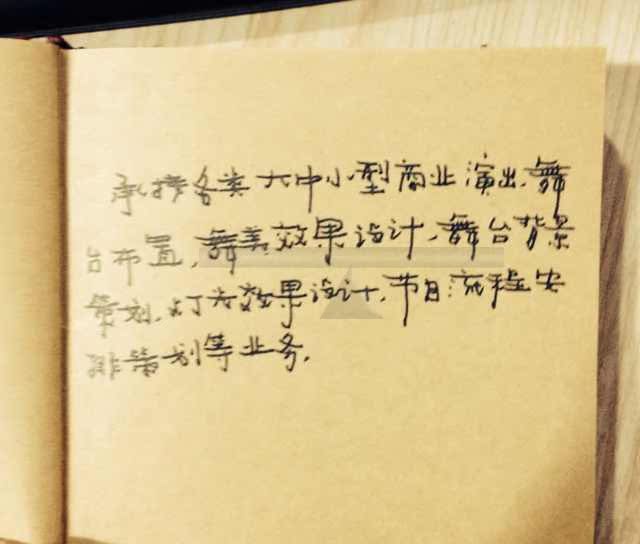 承接各类大中小型商业演出、舞
台布置、舞美效果设计、舞台背景
策划、灯光效果设计、节目流程安
排策划等业务。